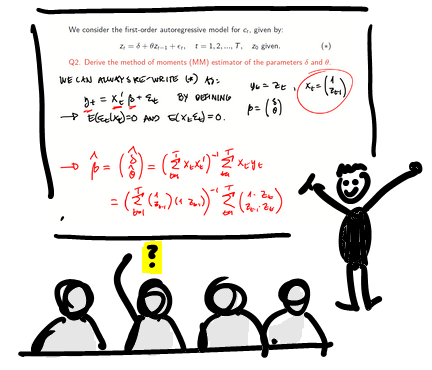 We consider the first-order autoregressive model for cₜ, given by:
zₜ = δ + θzₜ₋₁ + εₜ, t = 1, 2, ..., T, z₀ given. (*)
Q2. Derive the method of moments (MM) estimator of the parameters δ and θ.
WE CAN ALWAYS RE-WRITE (*) AS:
yₜ = xₜ'β + εₜ BY DEFINING yₜ = zₜ, xₜ = (1 zₜ₋₁)
β = (δ θ)
→ E(εₜ|xₜ)=0 AND E(xₜεₜ)=0.
→ β̂ = (δ̂ θ̂) = (Σₜ₌₁ᵀ xₜxₜ')⁻¹ Σₜ₌₁ᵀ xₜyₜ
= (Σₜ₌₁ᵀ (1 zₜ₋₁)(1 zₜ₋₁))⁻¹ Σₜ₌₁ᵀ (1·zₜ zₜ₋₁·zₜ)
?